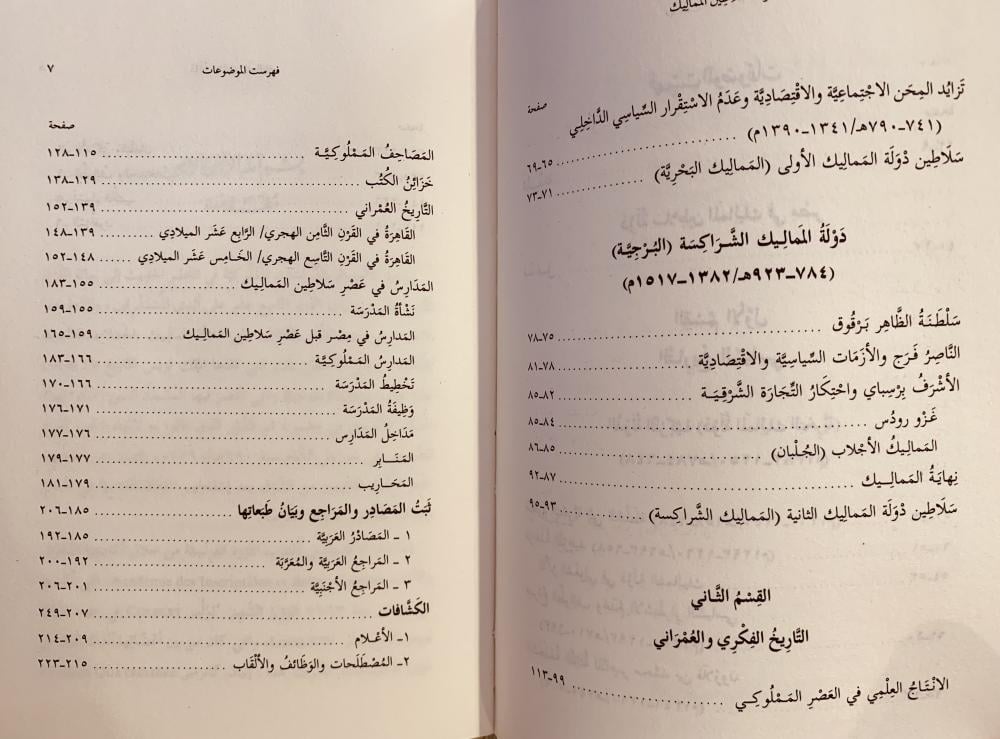 سلاطين المماليك
صفحة
تَزَايُد المِحَن الاجْتِماعِيَّة والاقْتِصَادِيَّة وعَدَمُ الاسْتِقْرار السِّياسي الدَّاخِلِي
(٧٤١–٧٩٠هـ/١٣٤١–١٣٩٠م) ........ ٦٥–٦٩
سَلَاطِين دَوْلَة المَماليك الأولى (المَماليك البَحْرِيَّة) ........ ٧١–٧٣
دَوْلَةُ المَمالِيك الشَّرَاكِسَة (البُرْجِيَّة)
(٧٨٤–٩٢٣هـ/١٣٨٢–١٥١٧م)
سَلْطَنَةُ الظَّاهِر بَرْقُوق ........ ٧٥–٧٨
النَّاصِرُ فَرَج والأزَمَات السِّياسِيَّة والاقْتِصَادِيَّة ........ ٧٨–٨١
الأشْرَفُ بَرْسِباي واحْتِكَارُ التِّجَارَة الشَّرْقِيَّة ........ ٨٢–٨٥
غَزْو رودُس ........ ٨٤–٨٥
المَماليكُ الأجْلاب (الجُلْبان) ........ ٨٥–٨٦
نِهايَةُ المَمالِيك ........ ٨٧–٩٢
سَلَاطِين دَوْلَة المَماليك الثانية (المَماليك الشَّراكِسة) ........ ٩٣–٩٥
القِسْمُ الثَّاني
التَّاريخُ الفِكْرِي والعُمْرَاني
الانْتَاجُ العِلْمِي في العَصْرِ المَمْلُوكِي ........ ٩٩–١١٣
فهرست الموضوعات ٧
صفحة
المَصَاحِفُ المَمْلُوكِيَّة ........ ١١٥–١٢٨
خَزَائِنُ الكُتُب ........ ١٢٩–١٣٨
التَّاريخُ العُمْرَاني ........ ١٣٩–١٥٢
القَاهِرَةُ في القَرْنِ الثَّامِن الهجري/ الرَّابع عَشَر الميلادي ........ ١٣٩–١٤٨
القَاهِرَةُ في القَرْنِ التَّاسِع الهجري/ الخَامِس عَشَر الميلادي ........ ١٤٨–١٥٢
المَدَارِسُ في عَصْرِ سَلَاطِين المَمَاليك ........ ١٥٥–١٨٣
نَشْأةُ المَدْرَسَة ........ ١٥٥–١٥٩
المَدارِسُ في مِصْر قبل عَصْرِ سَلَاطين المَماليك ........ ١٥٩–١٦٥
المَدارِسُ المَمْلُوكِيَّة ........ ١٦٦–١٨٣
تَخْطِيطُ المَدْرَسَة ........ ١٦٦–١٧٠
وَظِيفَةُ المَدْرَسَة ........ ١٧١–١٧٦
مَدَاخِلُ المَدَارِس ........ ١٧٦–١٧٧
المَنَابِر ........ ١٧٧–١٧٩
المَحَارِيب ........ ١٧٩–١٨١
ثَبَتُ المَصَادِر والمَرَاجِع وبَيَانُ طَبَعاتِها ........ ١٨٥–٢٠٦
١ – المَصَادرُ العَرَبِيَّة ........ ١٨٥–١٩٢
٢ – المَراجِعُ العَرَبِيَّة والمُعَرَّبَة ........ ١٩٢–٢٠٠
٣ – المَراجِعُ الأجْنَبِيَّة ........ ٢٠١–٢٠٦
الكَشَّافات ........ ٢٠٧–٢٤٩
١– الأعْلام ........ ٢٠٩–٢١٤
٢– المُصْطَلَحات والوَظَائِفُ والألْقَاب ........ ٢١٥–٢٢٣